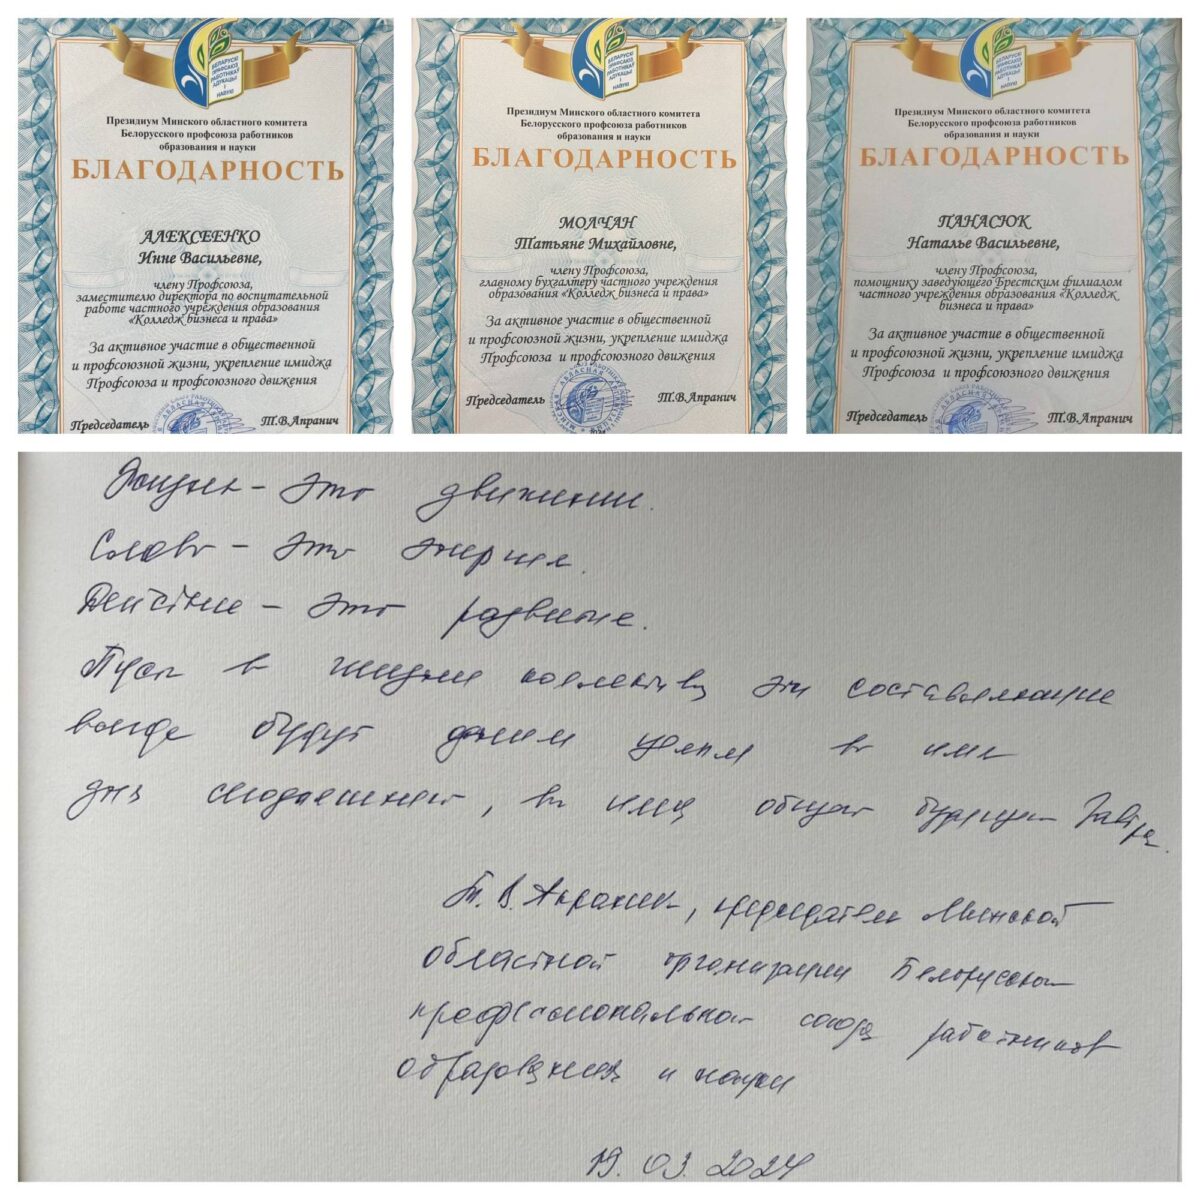 БЕЛАРУСКІ
ПРАФСАЮЗ
РАБОТНІКАЎ
АДУКАЦЫІ
І НАВУКІ
Президиум Минского областного комитета
Белорусского профсоюза работников
образования и науки
БЛАГОДАРНОСТЬ
АЛЕКСЕЕНКО
Инне Васильевне,
члену Профсоюза,
заместителю директора по воспитательной
работе частного учреждения образования
«Колледж бизнеса и права»
За активное участие в общественной
и профсоюзной жизни, укрепление имиджа
Профсоюза и профсоюзного движения
Председатель Т.В.Апранич
БЕЛАРУСКІ
ПРАФСАЮЗ
РАБОТНІКАЎ
АДУКАЦЫІ
І НАВУКІ
Президиум Минского областного комитета
Белорусского профсоюза работников
образования и науки
БЛАГОДАРНОСТЬ
МОЛЧАН
Татьяне Михайловне,
члену Профсоюза,
главному бухгалтеру частного учреждения
образования «Колледж бизнеса и права»
За активное участие в общественной
и профсоюзной жизни, укрепление имиджа
Профсоюза и профсоюзного движения
Председатель Т.В.Апранич
БЕЛАРУСКІ
ПРАФСАЮЗ
РАБОТНІКАЎ
АДУКАЦЫІ
І НАВУКІ
Президиум Минского областного комитета
Белорусского профсоюза работников
образования и науки
БЛАГОДАРНОСТЬ
ПАНАСЮК
Наталье Васильевне,
члену Профсоюза,
помощнику заведующего Брестским филиалом
частного учреждения образования «Колледж
бизнеса и права»
За активное участие в общественной
и профсоюзной жизни, укрепление имиджа
Профсоюза и профсоюзного движения
Председатель Т.В.Апранич
Жизнь – это движение.
Слово – это энергия.
Действие – это развитие.
Пусть в жизни коллектива эти составляющие
всегда будут единым целым во имя
дня сегодняшнего, во имя общего будущего Завтра.
Т.В. Апранич, председатель Минской
областной организации Белорусского
профессионального союза работников
образования и науки
19.03.2024